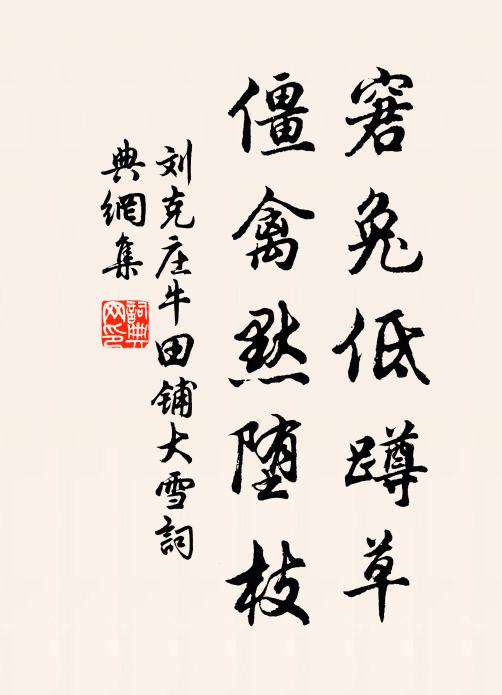 窘兔低蹲草
僵禽黙堕枝
刘克庄牛田铺大雪詞
典網集
詞典
网印